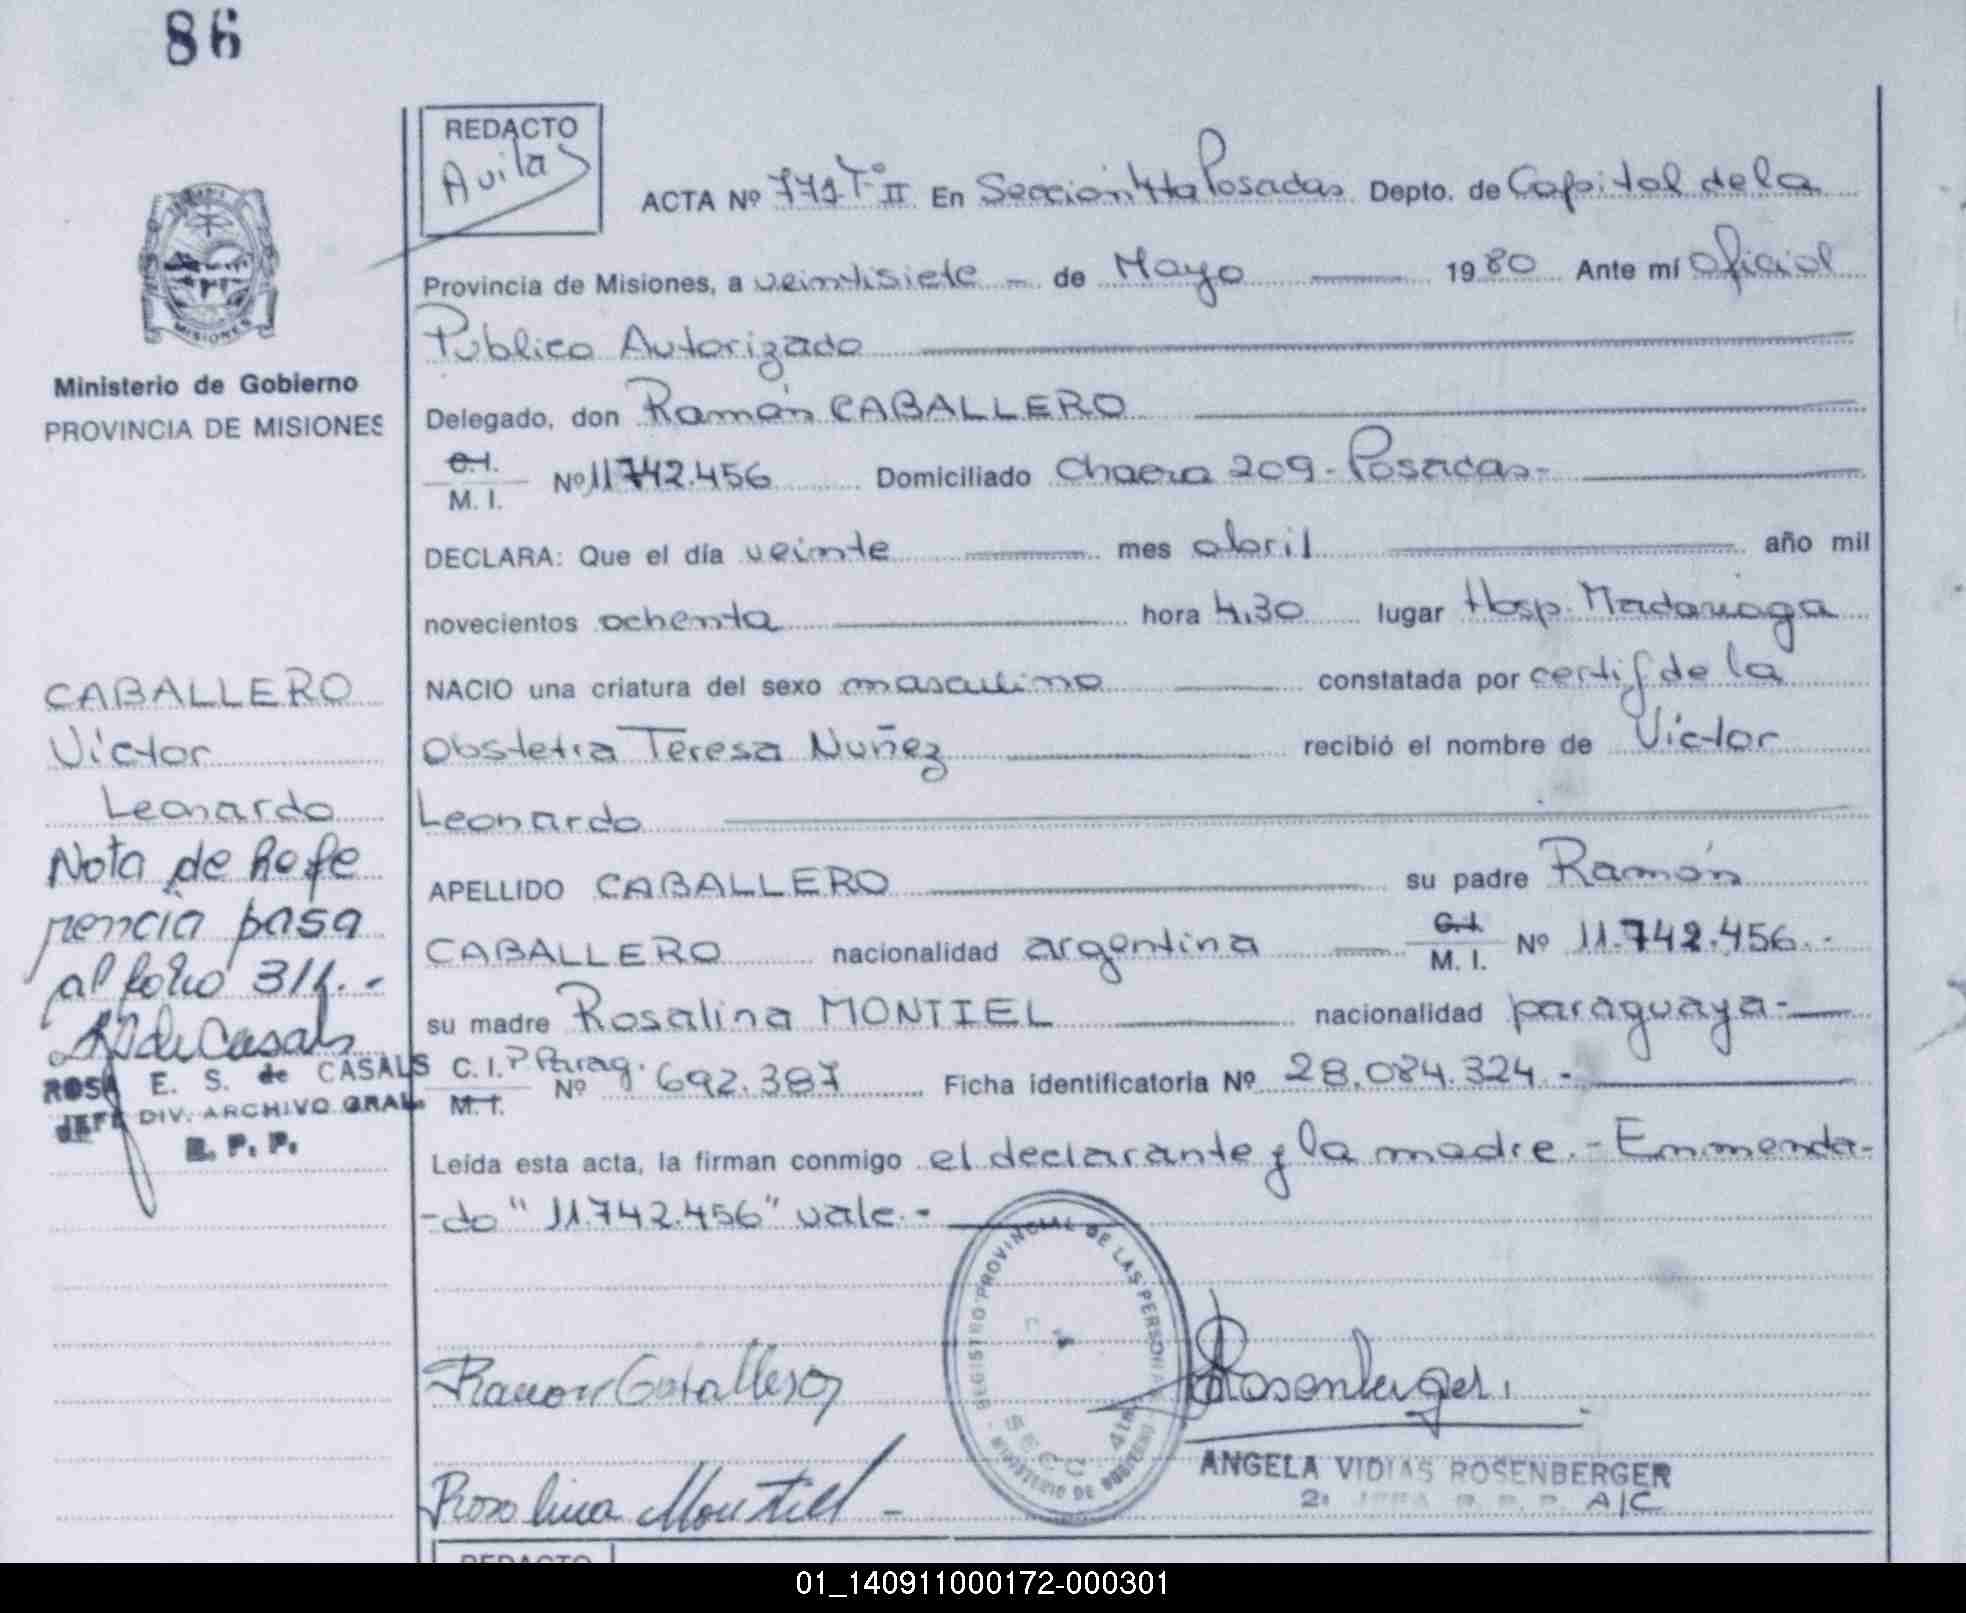 86
REDACTO
Avila
ACTA Nº 771 Tº II En Sección 4ta Posadas Depto. de Capital de la
Provincia de Misiones, a veintisiete - de Mayo 1980 Ante mí Oficial
Publico Autorizado
Delegado, don Ramón CABALLERO
C. I.
M. I.
Nº 11742.456 Domiciliado Chacra 209 - Posadas -
DECLARA: Que el día veinte mes abril año mil
novecientos ochenta hora 4,30 lugar Hosp. Madariaga
NACIO una criatura del sexo masculino constatada por certif de la
Obstetra Teresa Nuñez recibió el nombre de Víctor
Leonardo
APELLIDO CABALLERO su padre Ramón
CABALLERO nacionalidad argentina
C. I.
M. I.
Nº 11.742.456.-
su madre Rosalina MONTIEL nacionalidad paraguaya -
C. I. Parag.
M. I.
Nº 692.387 Ficha identificatoria Nº 28.084.324.-
Leída esta acta, la firman conmigo el declarante y la madre.- Enmenda-
-do "11.742.456" vale.-
Ministerio de Gobierno
PROVINCIA DE MISIONES
MISIONES
CABALLERO
Víctor
Leonardo
Nota de Refe
rencia pasa
al folio 311.-
de Casals
ROSA E. S. de CASALS
JEFE DIV. ARCHIVO GRAL.
R. P. P.
REGISTRO PROVINCIAL DE LAS PERSONAS
SECC. 4ta
MINISTERIO DE GOBIERNO
Ramon Caballero
Rosenberger
Rosalina Montiel -
ANGELA VIDIAS ROSENBERGER
A/C
REDACTO
01_140911000172-000301